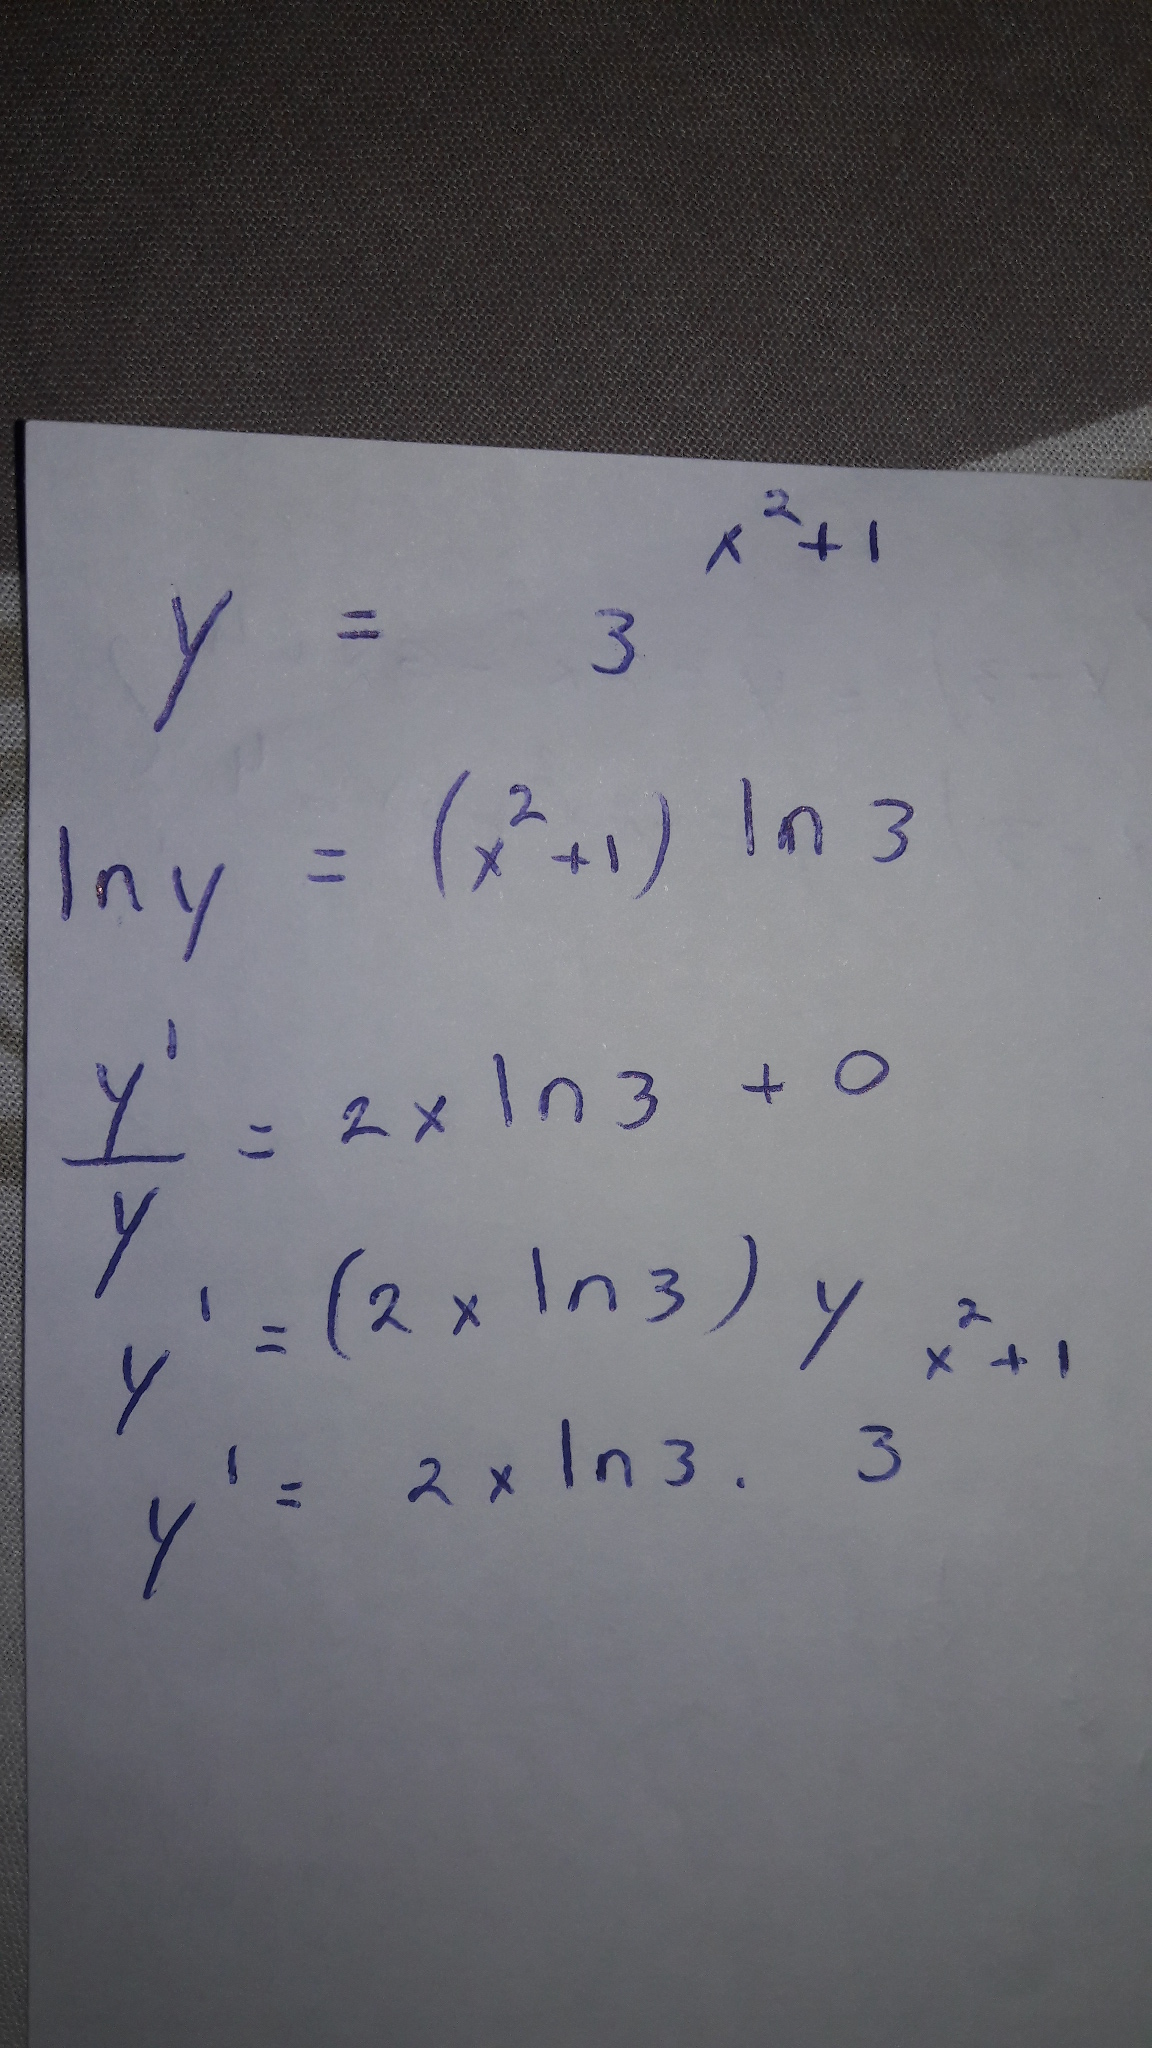 y = 3^{x^2+1}
ln y = (x^2+1) ln 3
y'/y = 2x ln 3 + 0
y' = (2x ln 3) y
y' = 2x ln 3 . 3^{x^2+1}